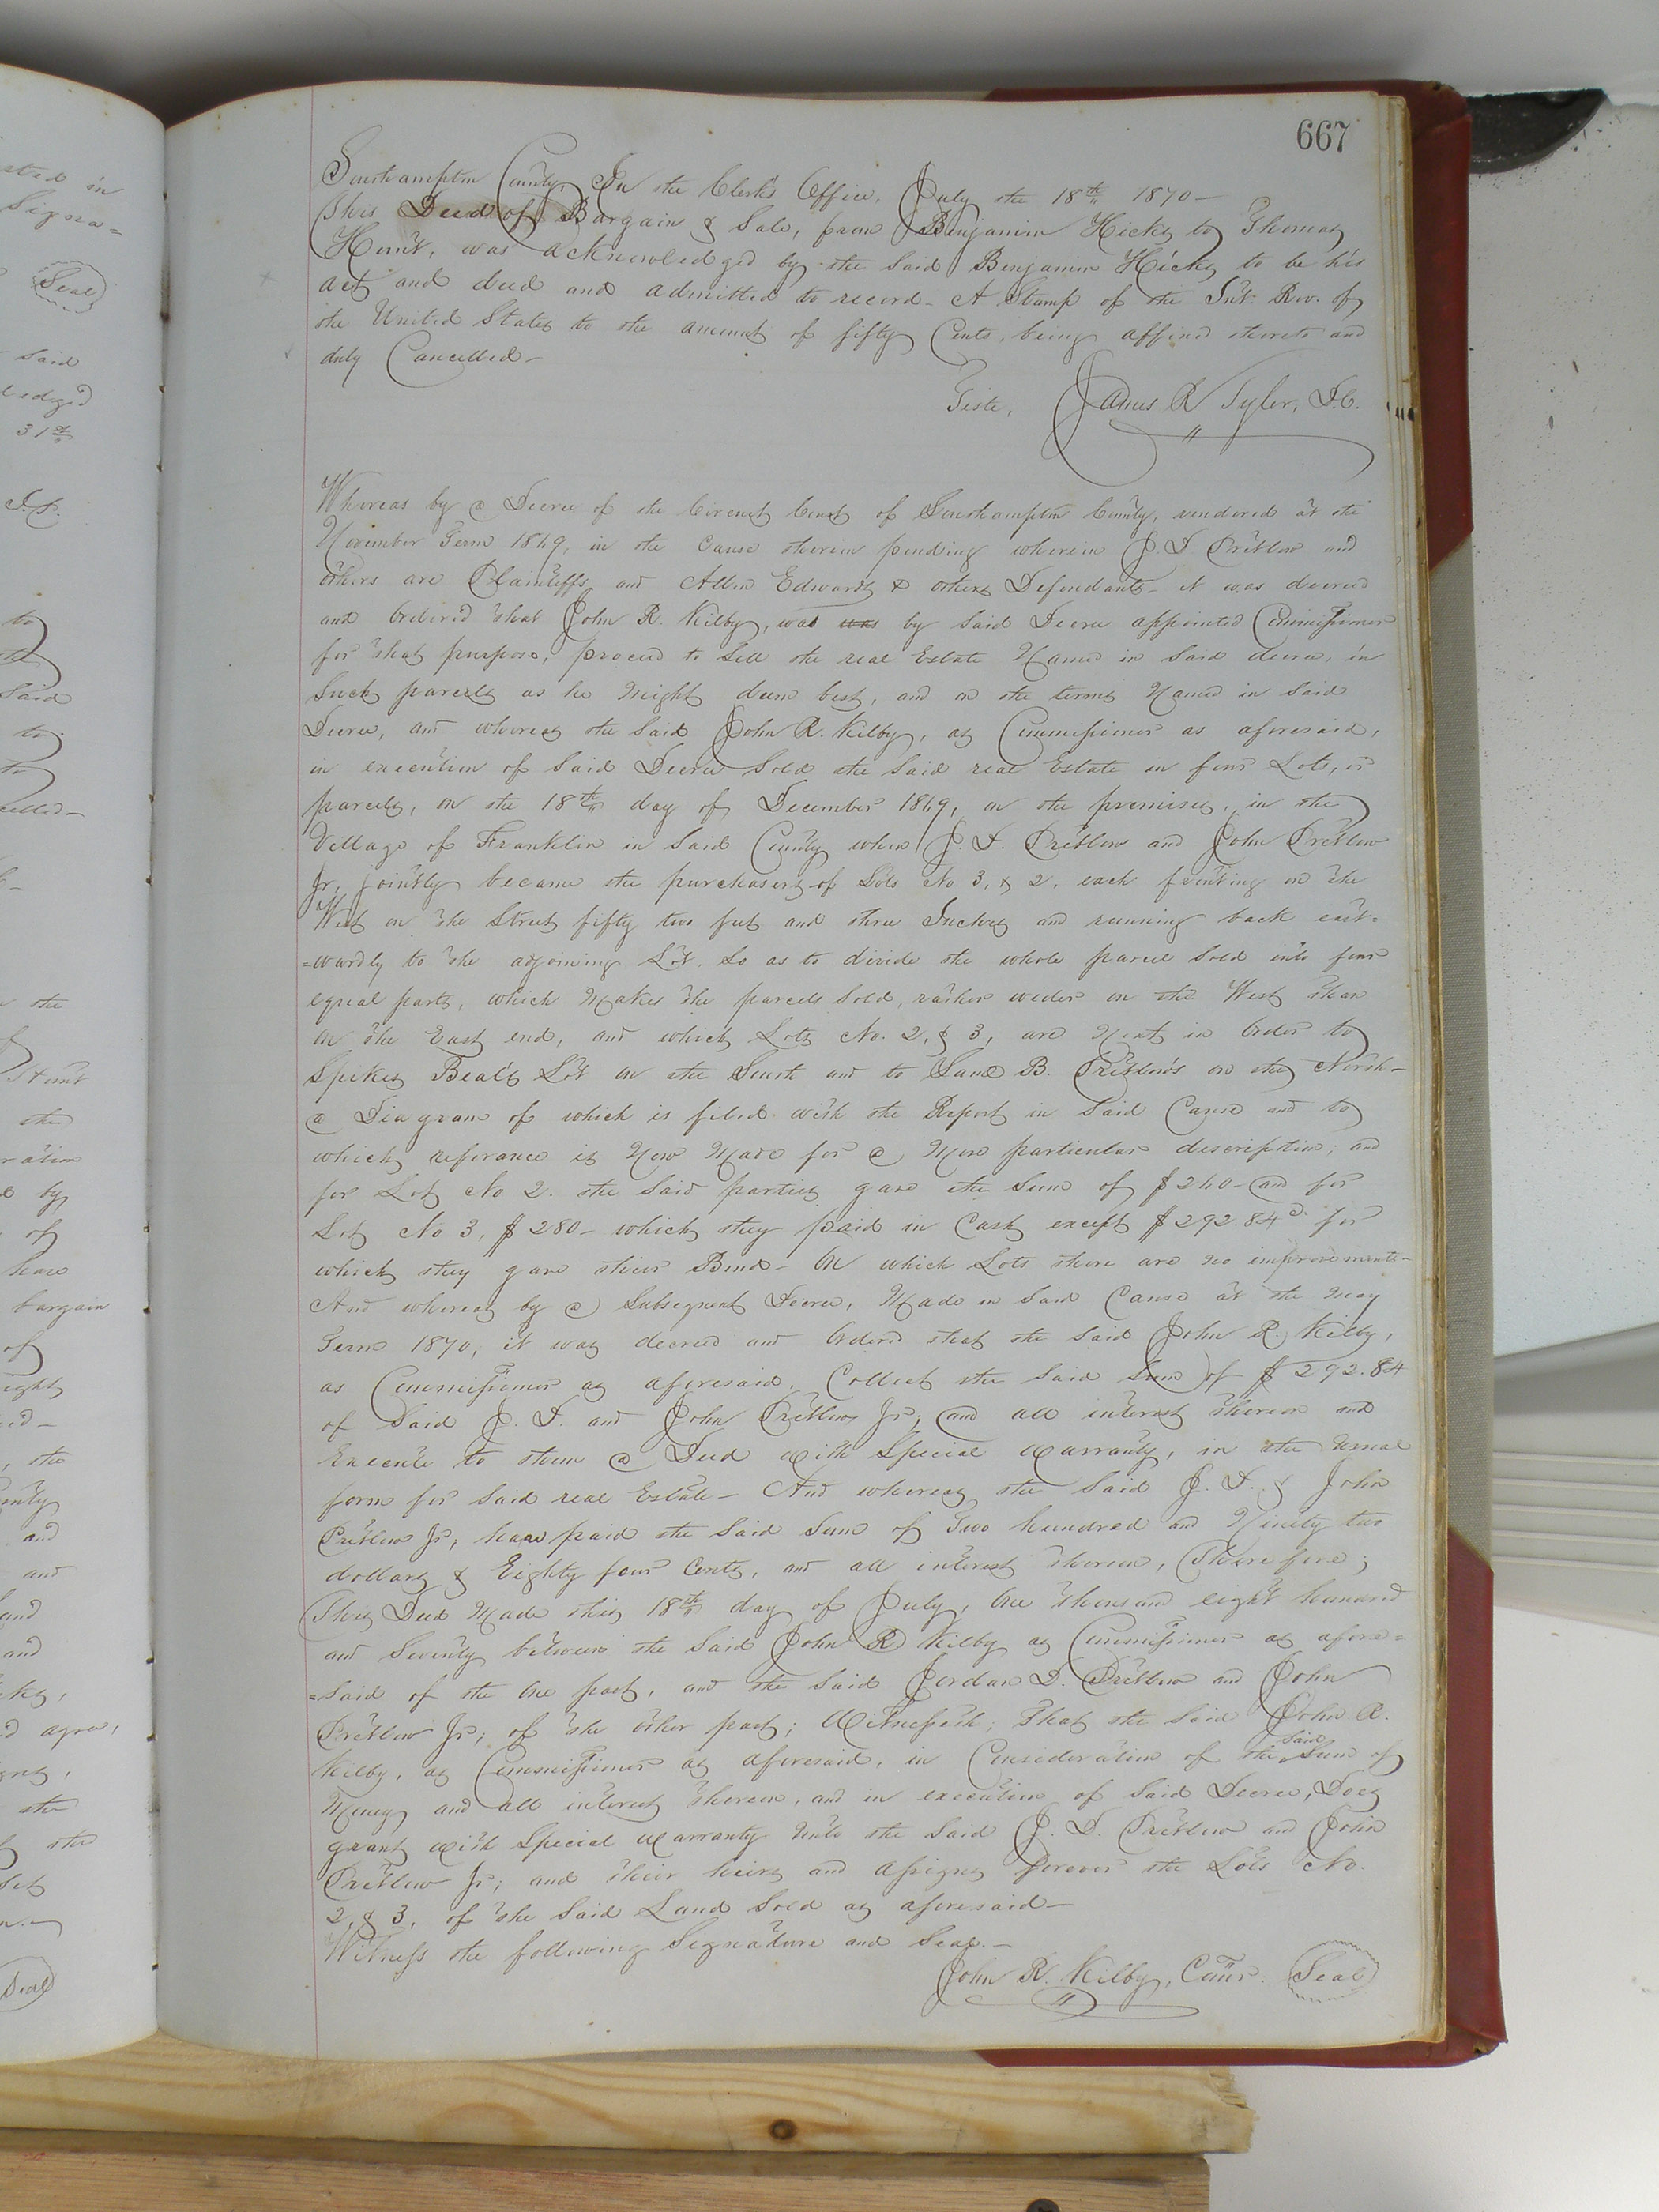 667
Southampton County, In the Clerk's Office, July the 18th 1870 —
This Deed of Bargain & Sale, from Benjamin Hicks to Thomas
Hunt, was acknowledged by the said Benjamin Hicks to be his
act and deed and admitted to record — A Stamp of the Int. Rev. of
the United States to the amount of fifty Cents, being affixed thereto and
duly Cancelled —
Teste, James R Tyler, D.C.
Whereas by a Decree of the Circuit Court of Southampton County, rendered at the
November Term 1869, in the Cause therein pending wherein J. D. Pretlow and
others are Plaintiffs and Allen Edwards & others Defendants — it was decreed
and Ordered that John R. Kilby, was was by said Decree appointed Commissioner
for that purpose, proceed to Sell the real Estate Named in Said decree, in
Such parcels as he Might deem best, and on the terms Named in Said
Decree, and whereas the Said John R. Kilby, as Commissioner as aforesaid,
in execution of Said Decree Sold the Said real Estate in four Lots, or
parcels, on the 18th day of December 1869, on the premises, in the
Village of Franklin in Said County when J. D. Pretlow and John Pretlow
Jr, jointly became the purchasers of Lots No. 3, & 2, each fronting on the
West on the Street fifty two feet and three Inches and running back east=
=wardly to the adjoining Lot. So as to divide the whole parcel Sold into four
equal parts, which Makes the parcels Sold, rather wider on the West than
on the East end, and which Lots No. 2, & 3, are Next in Order to
Spikes Beal's Lot on the South and to Saml B. Pretlow's on the North —
a Diagram of which is filed with the Report in Said Cause and to
which referance is Now Made for a More particular description, and
for Lot No 2. the Said parties gave the Sum of $260 — and for
Lot No 3, $280 — which they paid in Cash except $292.84 for
which they gave their Bond — On which Lots there are no improvements —
And whereas by a Subsequent Decree, Made in Said Cause at the May
Term 1870, it was decreed and Orderd that the Said John R. Kilby,
as Commissioner as aforesaid, Collect the Said Sum of $292.84
of Said J. D. and John Pretlow Jr; and all interest thereon and
Execute to them a Deed with Special Warranty, in the Usual
form for Said real Estate — And whereas the Said J. D. & John
Pretlow Jr, have paid the Said Sum of Two hundred and Ninety two
dollars & Eighty four Cents, and all interest thereon, Therefore;
This Deed Made this 18th day of July, One thousand eight hundred
and Seventy between the Said John R Kilby as Commissioner as afore=
=said of the One part, and the Said Jordan D. Pretlow and John
Pretlow Jr; of the other part; Witnesseth; That the Said John R.
Kilby, as Commissioner as aforesaid, in Consideration of the said Sum of
Money and all interest thereon, and in execution of Said Decree, Does
grant with Special Warranty Unto the Said J. D. Pretlow and John
Pretlow Jr; and their heirs and assigns forever the Lots No.
2, & 3, of the Said Land Sold as aforesaid —
Witness the following Signature and Seal. —
John R. Kilby, Comr. Seal